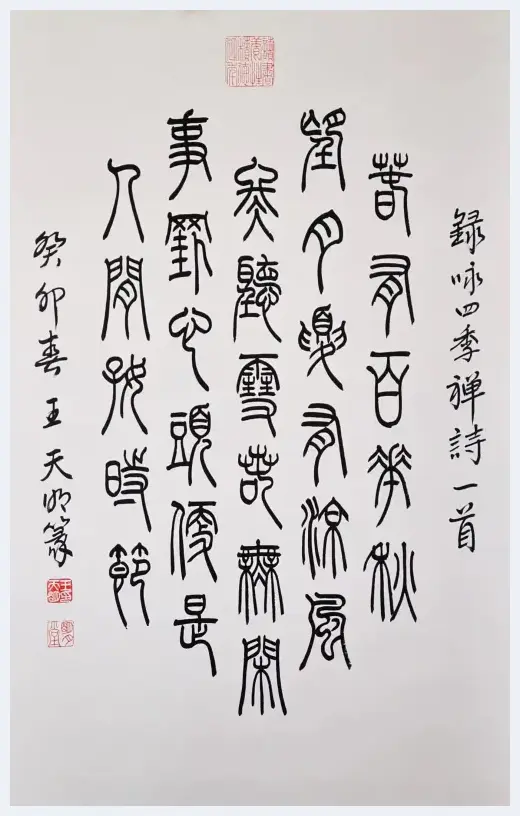 録咏四季禅詩一首
春有百花秋
望月夏有涼風
冬聽雪若無閑
事心頭便是
人間好時節
癸卯春王天明篆